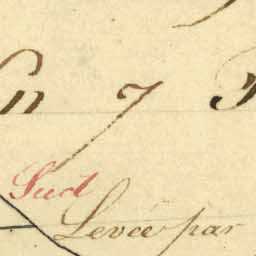 n 7
Sud
Levée par